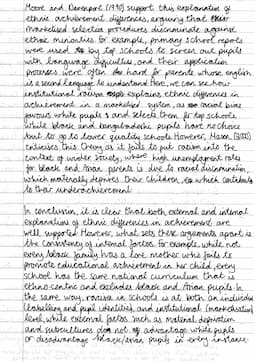 Moore and Davenport (1990) support this explanation of
ethnic achievement differences, arguing that
marketised selection procedures discriminate against
ethnic minorities. For example, primary school reports
were used by top schools to screen out pupils
with language difficulties, and their application
processes were often hard for parents whose english
is a second language to understand. Here, we can see how
institutional racism explains ethnic differences in
achievement in a marketised system, as racial bias
favours white pupils and selects them for top schools,
while black and bangladeshi pupils have no choice
but to go to lower quality schools. However,
criticises this theory as it fails to put racism into the
context of wider society, where high unemployment rates
for black and Asian parents is due to racial discrimination,
which materially deprives their children, which contributes
to their underachievement.
In conclusion, it is clear that both external and internal
explanations of ethnic differences in achievement are
well supported. However, what sets these arguments apart is
the consistency of internal factors. For example, while not
every black family has a lone mother who fails to
promote educational achievement in her child, every
school has the same national curriculum that is
ethnocentric and excludes black and Asian pupils. In
the same way, racism in schools is at both an individual
(labelling and pupil identities) and institutional (marketisation)
level, while external factors such as material deprivation
and subcultures do not advantage white pupils
or disadvantage black/asian pupils in every instance.